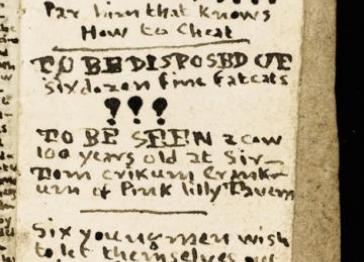 Par him that knows
How to Cheat
TO BE DISPOSED OF
six dozen fine fatcats
???
TO BE SEEN a cow
100 years old at Sir
Tom crikum Crankr
urn of Pink lilly Tavern
Six young men wish
to let themselves out